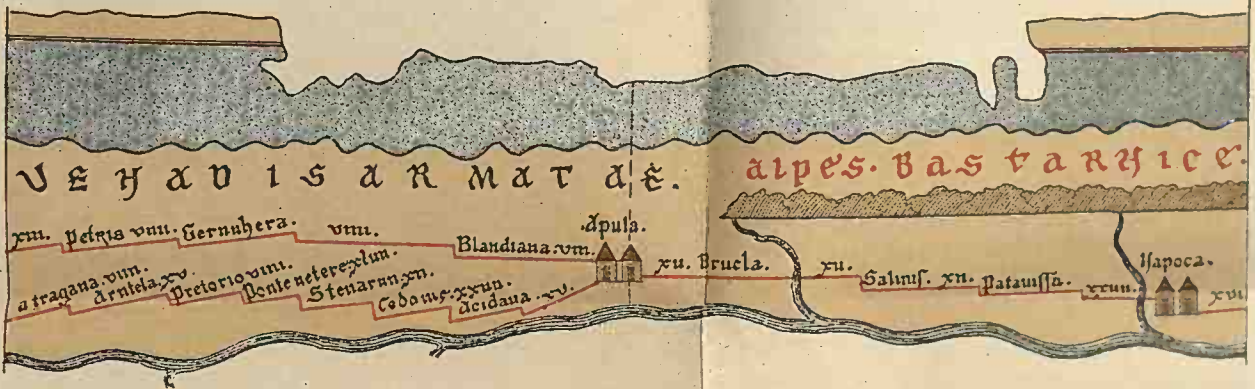 VENADISARMATAE.
alpes. BASTARNICE.
xiii. petris viiii. Germhera. viiii. Blandiana. viii. apula. xii. Brucla. xii. Salinis. xii. patauissa. xxiiii. Napoca. xvi
a tragana. viiii. arutela. xv. Pretorio viiii. Ponte uetere xliiii. Stenarun. xii. Cedonie. xxiiii. acidaua. xv.